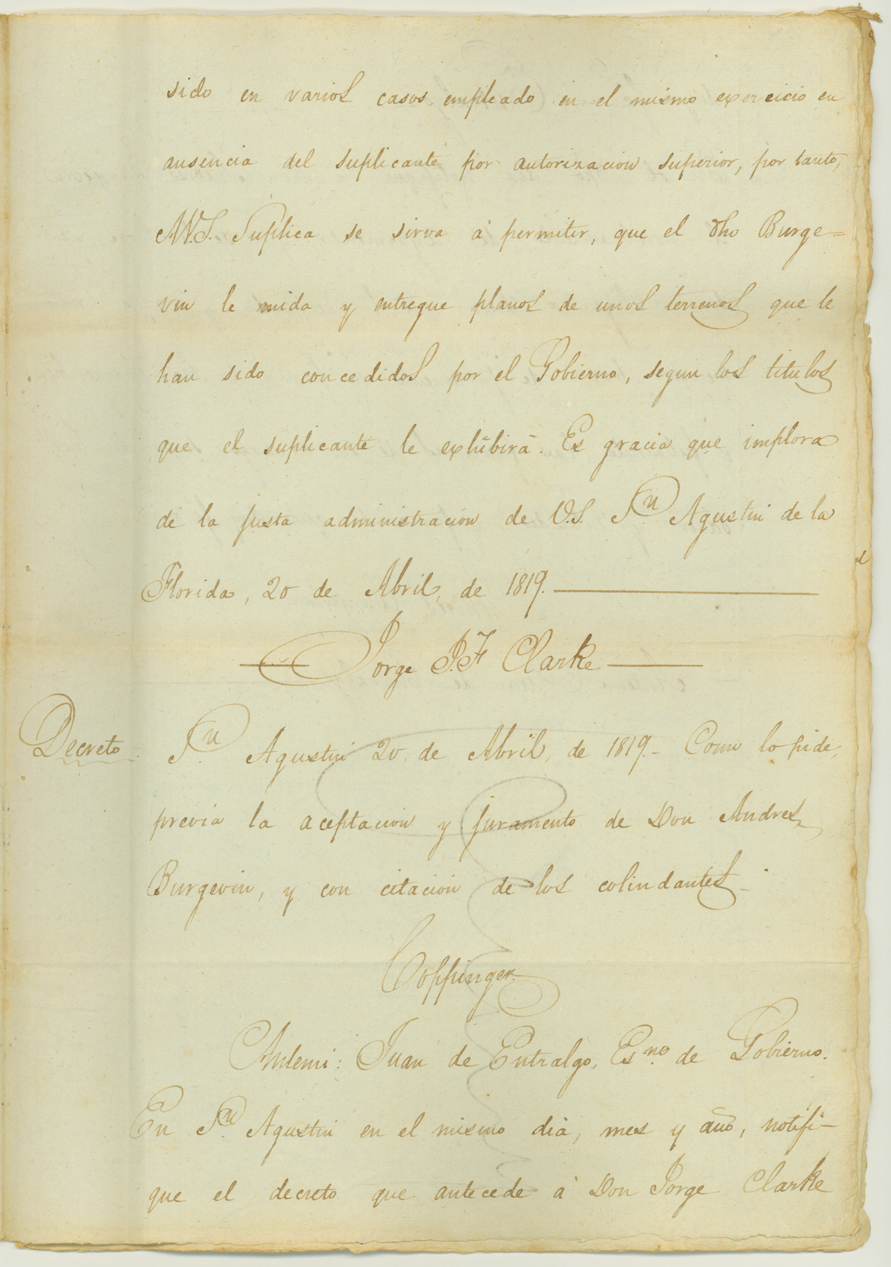 sido en varios casos empleado en el mismo exercicio en
ausencia del suplicante por autorizacion superior, por tanto,
A V.S. Suplica se sirva á permitir, que el dho Burge=
vin le mida y entregue planos de unos terrenos que le
han sido concedidos por el Gobierno, segun los titulos
que el suplicante le exhibirá. Es gracia que implora
de la justa administracion de V.S. Sn Agustin de la
Florida, 20 de Abril de 1819.
Jorge J. F. Clarke
Decreto Sn Agustin 20 de Abril de 1819 - Como lo pide,
previa la aceptacion y juramento de Don Andres
Burgevin, y con citación de los colindantes -
Coppinger
Antemi: Juan de Entralgo, Esno de Gobierno.
En Sn Agustin en el mismo dia, mes y año, notifi-
que el decreto que antecede á Don Jorge Clarke